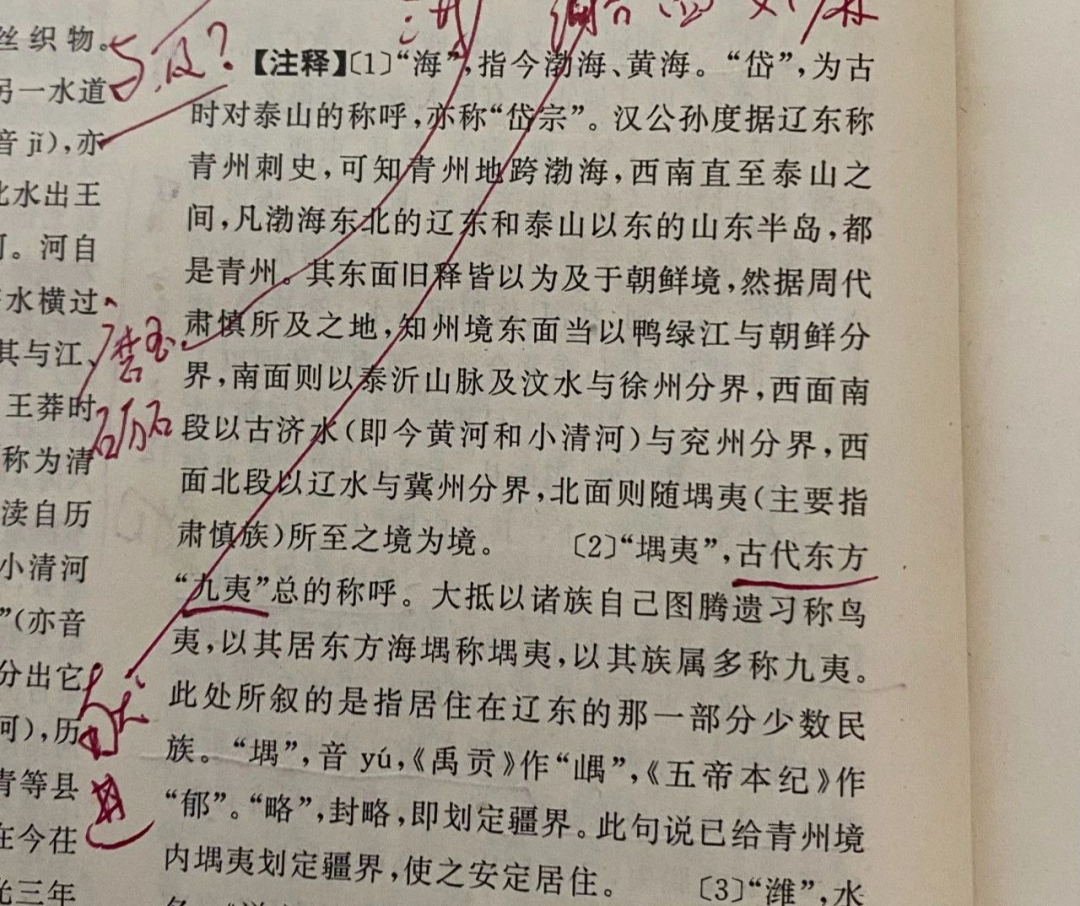 丝织物。
另一水道
音 jī),亦
北水出王
河。河自
水横过
其与江、
王莽时
称为清
渎自历
小清河
”(亦音
分出它
河),历
青等县
在今茌
光三年
与,及?
砺石
【注释】〔1〕“海”,指今渤海、黄海。“岱”,为古
时对泰山的称呼,亦称“岱宗”。汉公孙度据辽东称
青州刺史,可知青州地跨渤海,西南直至泰山之
间,凡渤海东北的辽东和泰山以东的山东半岛,都
是青州。其东面旧释皆以为及于朝鲜境,然据周代
肃慎所及之地,知州境东面当以鸭绿江与朝鲜分
界,南面则以泰沂山脉及汶水与徐州分界,西面南
段以古济水(即今黄河和小清河)与兖州分界,西
面北段以辽水与冀州分界,北面则随堣夷(主要指
肃慎族)所至之境为境。 〔2〕“堣夷”,古代东方
“九夷”总的称呼。大抵以诸族自己图腾遗习称鸟
夷,以其居东方海堣称堣夷,以其族属多称九夷。
此处所叙的是指居住在辽东的那一部分少数民
族。“堣”,音 yú,《禹贡》作“嵎”,《五帝本纪》作
“郁”。“略”,封略,即划定疆界。此句说已给青州境
内堣夷划定疆界,使之安定居住。 〔3〕“潍”,水